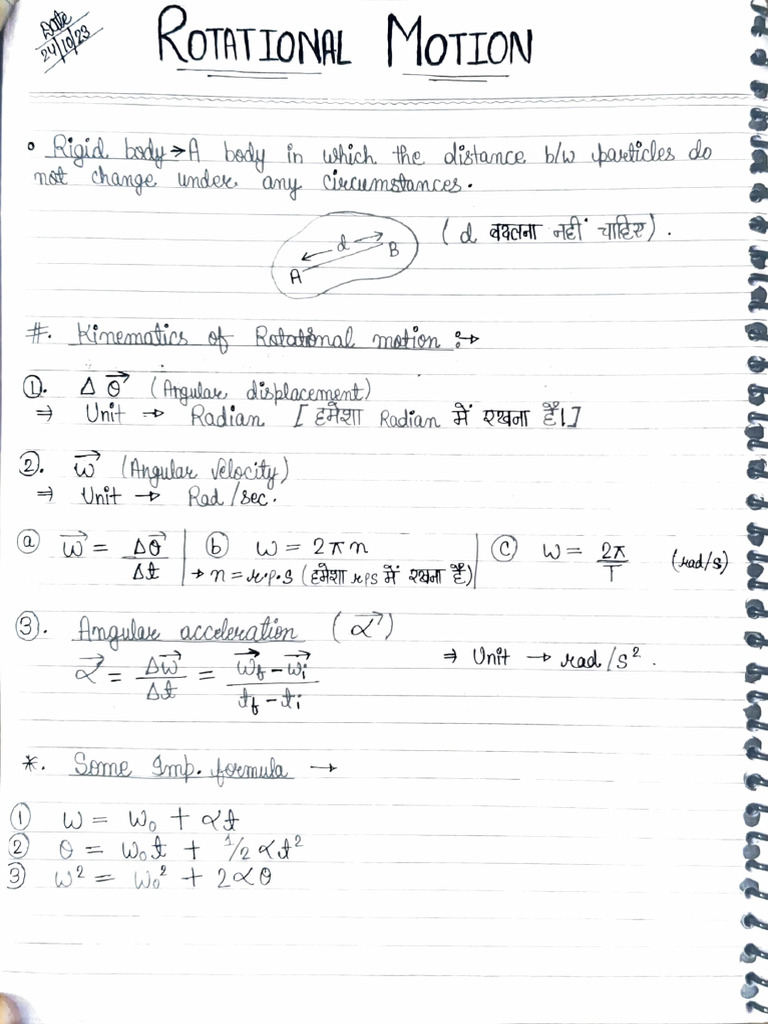 Date
24/10/23
ROTATIONAL MOTION
• Rigid body → A body in which the distance b/w particles do
not change under any circumstances.
d
A
B
(d बदलना नहीं चाहिए).
#. Kinematics of Rotational motion :→
①. Δθ⃗ (Angular displacement)
⇒ Unit → Radian [हमेशा Radian में रखना है।]
②. ω⃗ (Angular velocity)
⇒ Unit → Rad/sec.
ⓐ ω⃗ = Δθ⃗/Δt | ⓑ ω = 2πn | ⓒ ω = 2π/T (rad/s)
→ n = r.p.s (हमेशा rps में रखना है)
③. Angular acceleration (α⃗)
α⃗ = Δω⃗/Δt = (ω⃗f − ω⃗i)/(tf − ti) ⇒ Unit → rad/s².
*. Some Imp. formula →
① ω = ω₀ + αt
② θ = ω₀t + 1/2 αt²
③ ω² = ω₀² + 2αθ